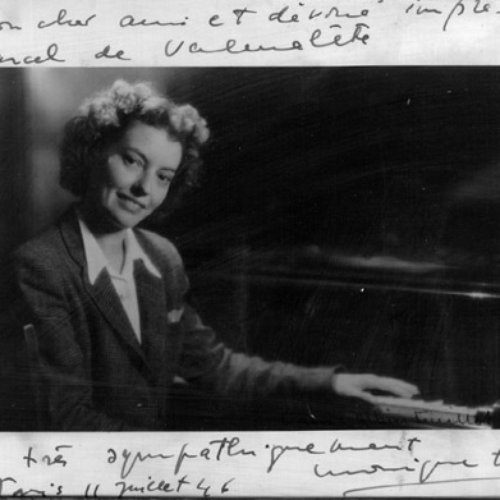 on cher ami et dévoué impre
arcel de Valmalète
très sympathiquement
monique
Paris 11 juillet 46